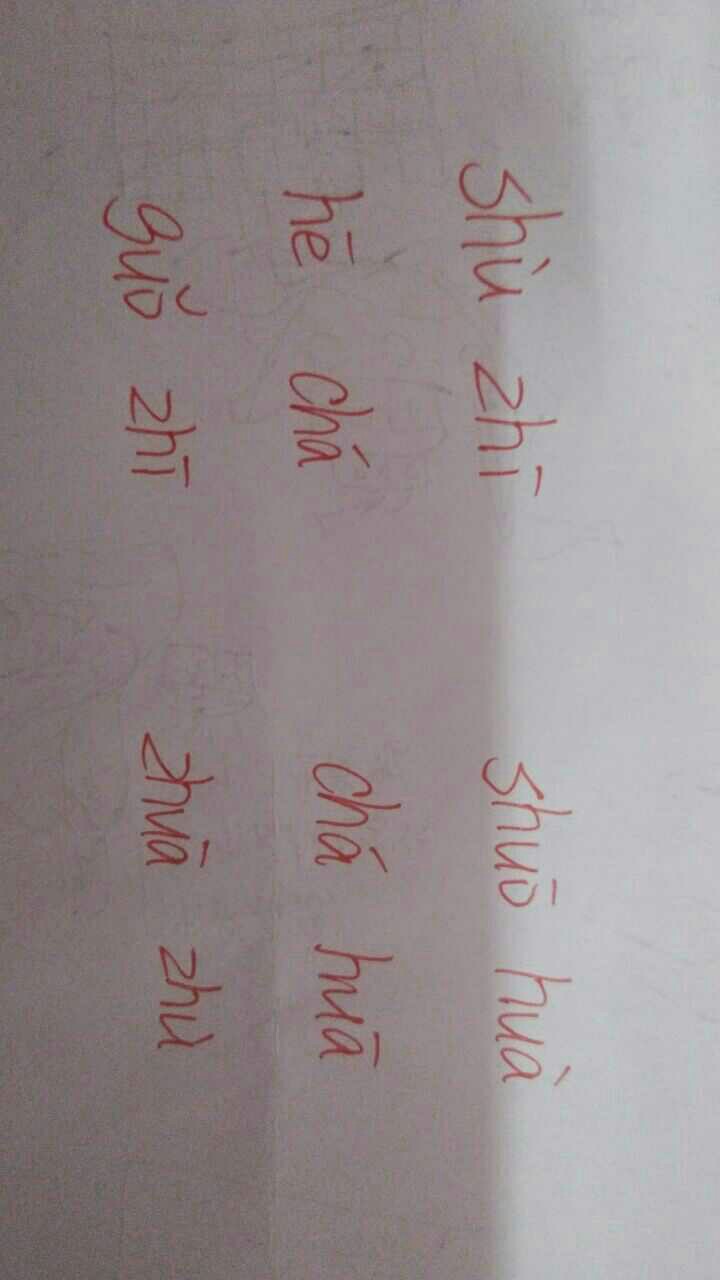 shù zhī shuō huà
hē chá chá huā
guǒ zhī zhuā zhù